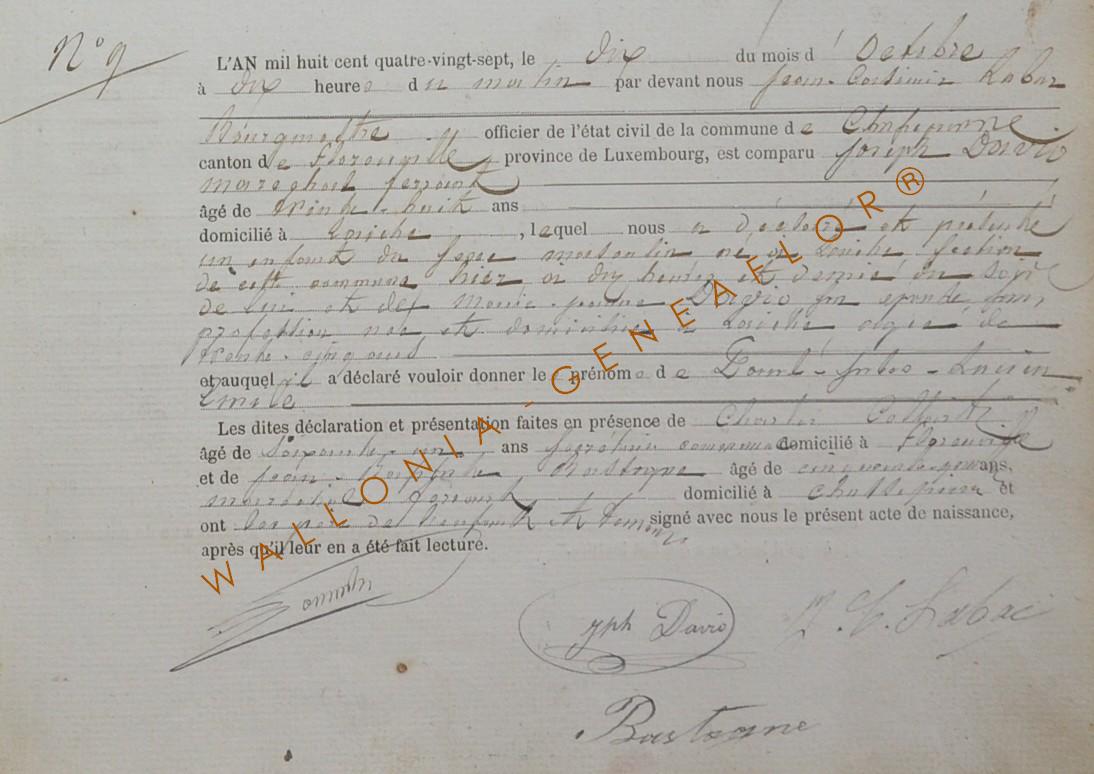 N° 9
L'AN mil huit cent quatre-vingt-sept, le dix du mois d' Octobre
à dix heures du matin par devant nous Jean-Casimir Labar
Bourgmestre officier de l'état civil de la commune de
canton de Florenville, province de Luxembourg, est comparu Joseph David
marechal ferrant
âgé de trente-huit ans
domicilié à Laiche, lequel nous a déclaré et présenté
un enfant du sexe masculin né à Laiche section
de cette commune hier a dix heures et demie du soir
de lui et de Marie-Jeanne son epouse sans
profession née et domiciliée à Laiche agée de
trente-cinq ans
et auquel il a déclaré vouloir donner le prénom de Jules-Lucien
Emile
Les dites déclaration et présentation faites en présence de Charles
âgé de soixante ans secrétaire communal domicilié à Florenville
et de Jean-Baptiste Bastogne âgé de cinquante ans,
maréchal ferrant domicilié à et
ont les père de l'enfant et temoins signé avec nous le présent acte de naissance,
après qu'il leur en a été fait lecture.
WALLONIA-GENEAFLOR®
Jph David
J. C. Labar
Bastogne